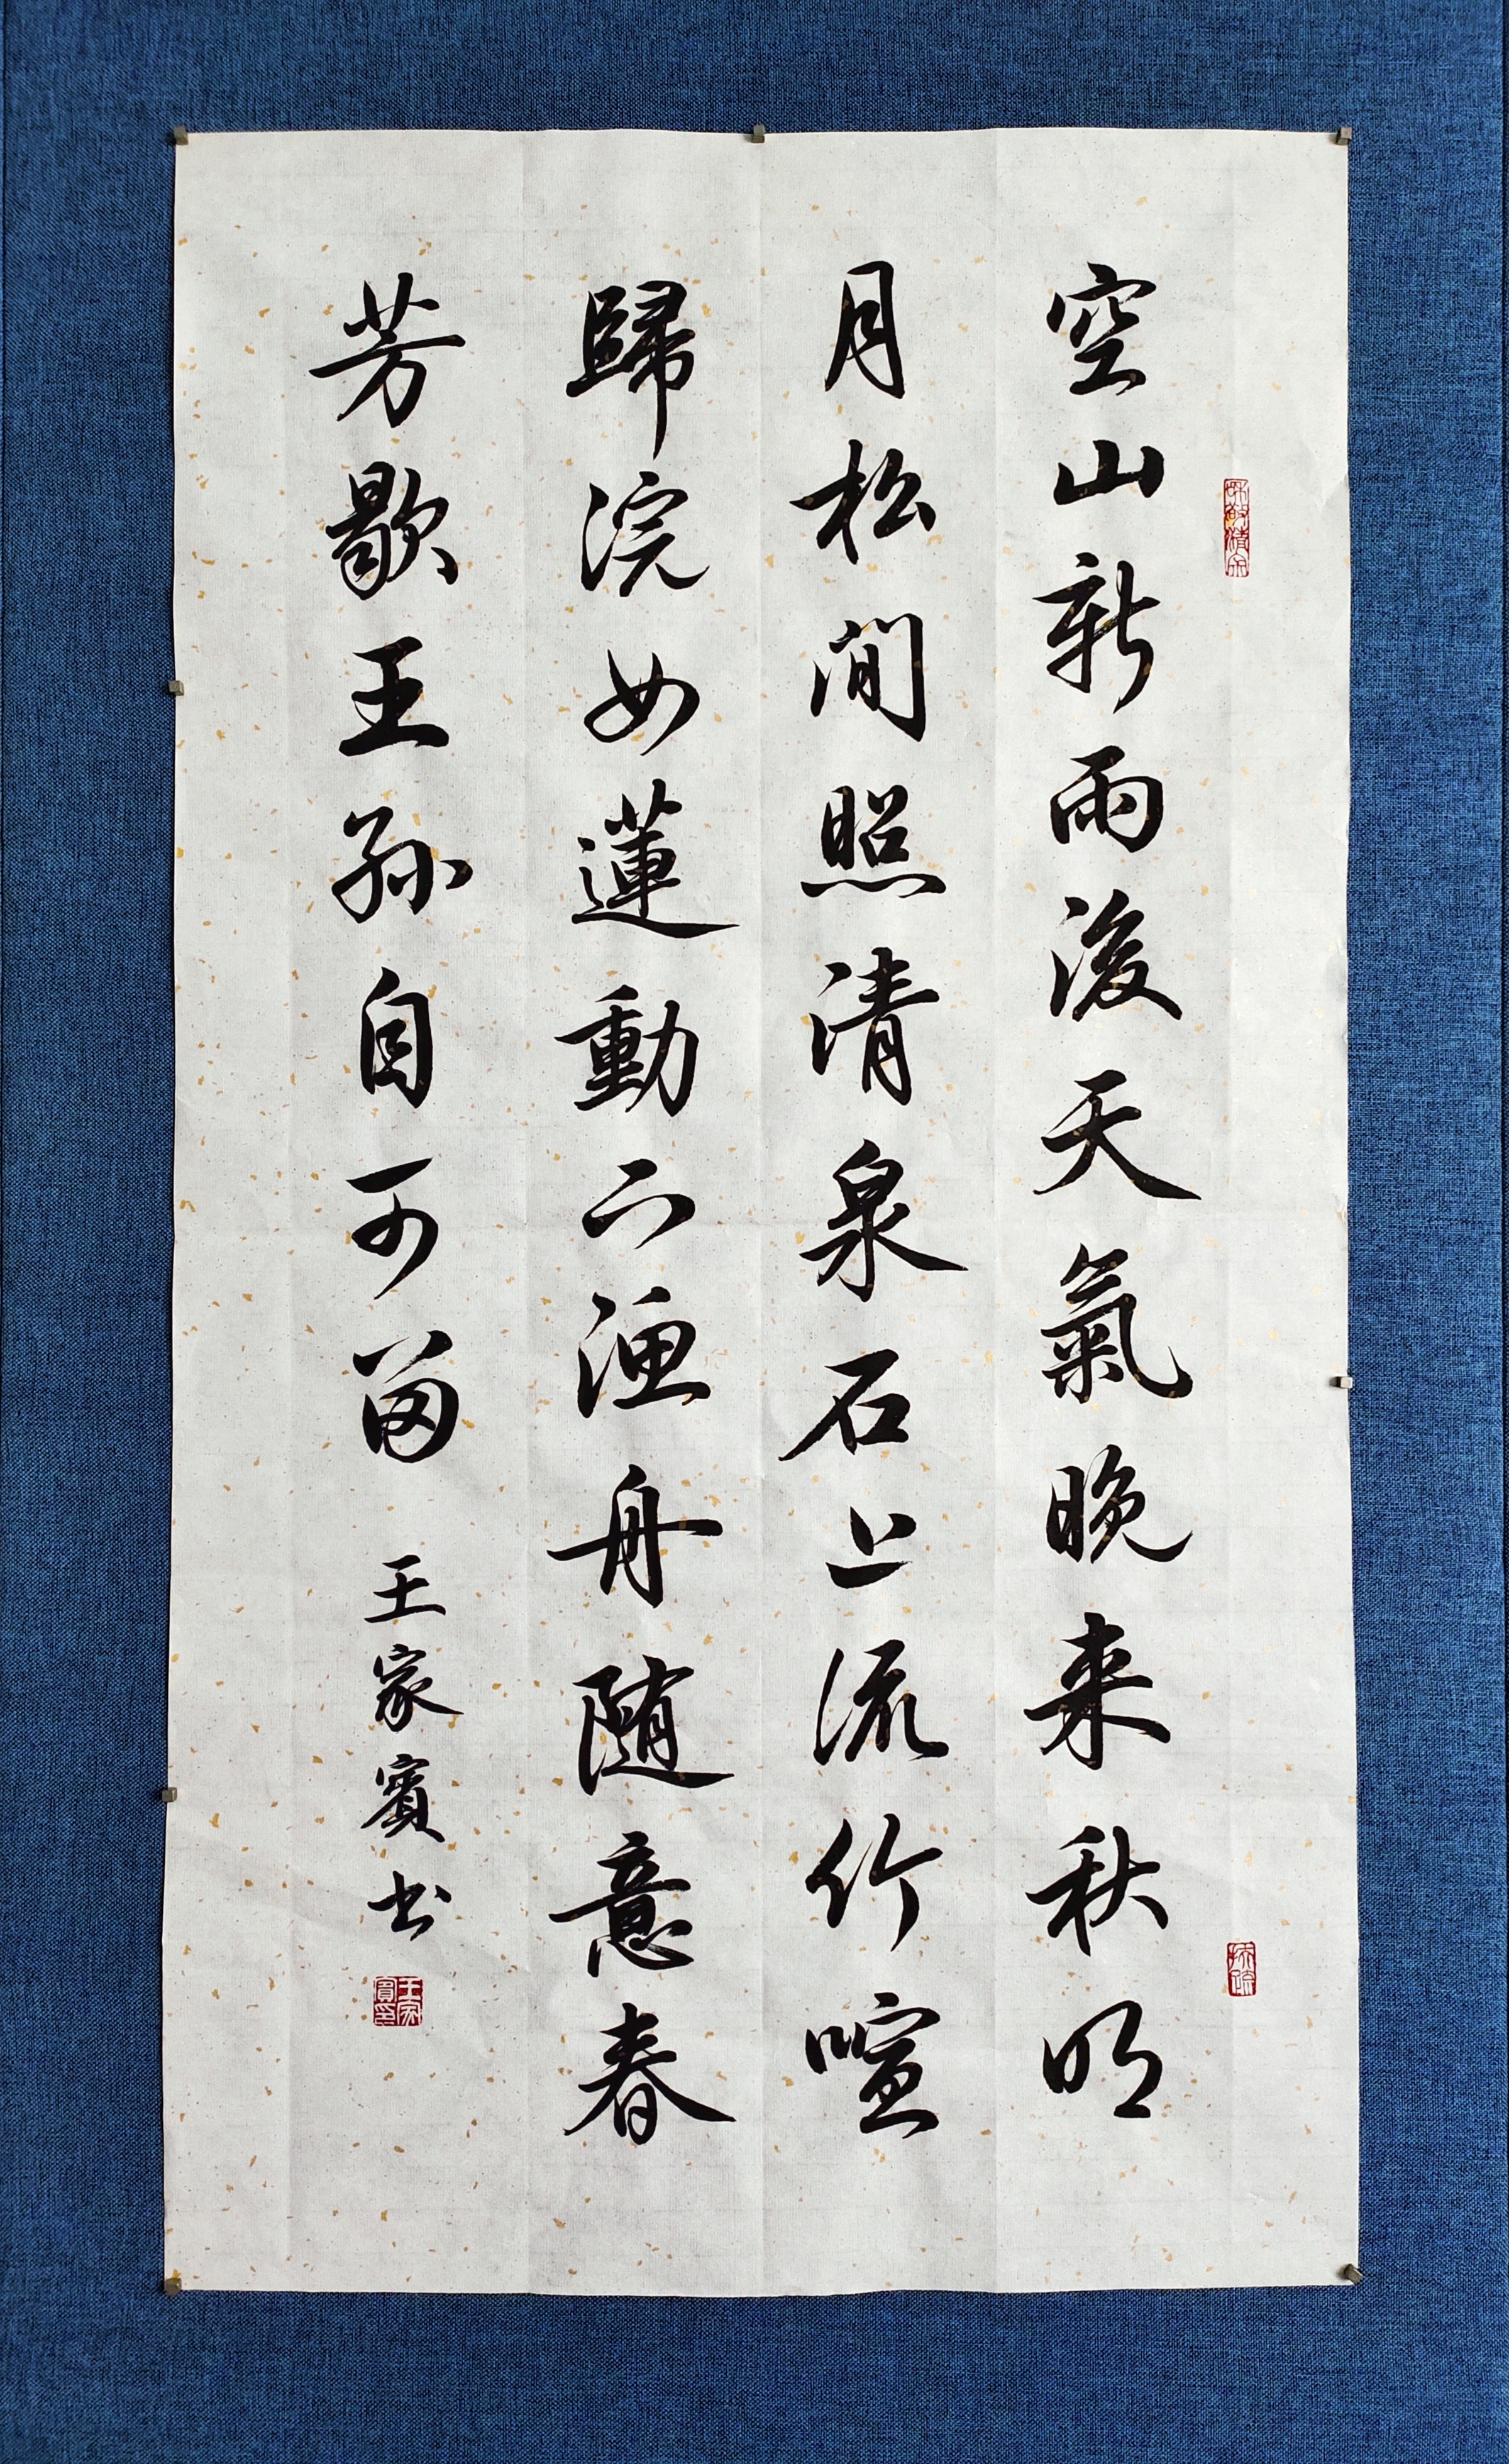 空山新雨後天氣晚来秋明
月松間照清泉石上流竹喧
歸浣女蓮動下漁舟随意春
芳歇王孫自可留
王家賓書
王家賓印